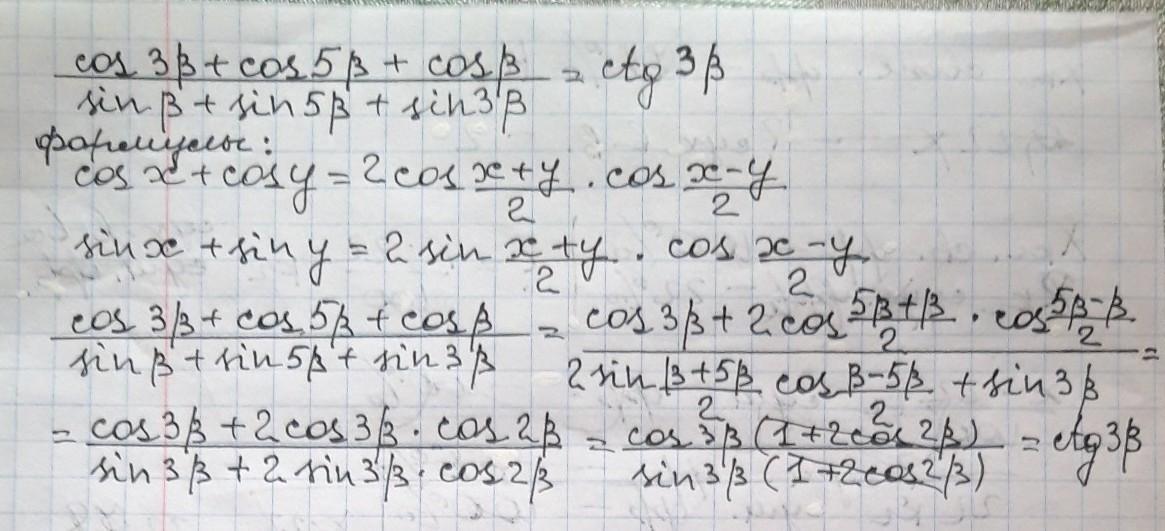 (cos 3β + cos 5β + cos β)/(sin β + sin 5β + sin 3β) = ctg 3β
формулы:
cos x + cos y = 2 cos (x+y)/2 · cos (x-y)/2
sin x + sin y = 2 sin (x+y)/2 · cos (x-y)/2
(cos 3β + cos 5β + cos β)/(sin β + sin 5β + sin 3β) = (cos 3β + 2 cos (5β+β)/2 · cos (5β-β)/2)/(2 sin (β+5β)/2 cos (β-5β)/2 + sin 3β) =
= (cos 3β + 2 cos 3β · cos 2β)/(sin 3β + 2 sin 3β · cos 2β) = (cos 3β (1+2cos 2β))/(sin 3β (1+2cos 2β)) = ctg 3β